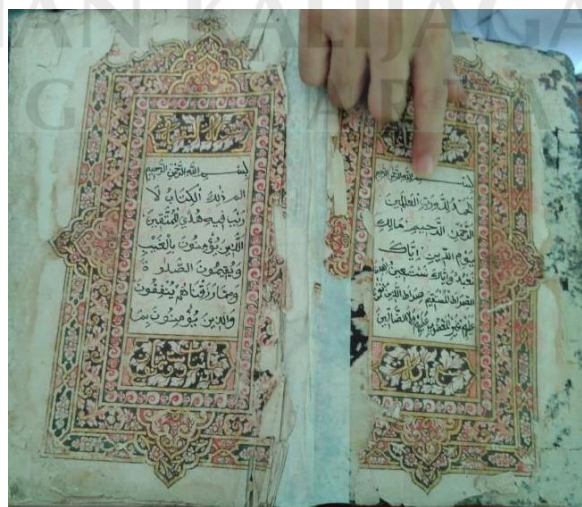 KALIJAGA
بسم الله الرحمن الرحيم
الحمد لله رب العالمين
الرحمن الرحيم مالك
يوم الدين إياك
نعبد وإياك نستعين اهدنا
الصراط المستقيم صراط الذين
عليهم غير المغضوب عليهم ولا الضالين
بسم الله الرحمن الرحيم
الم ذلك الكتاب لا
ريب فيه هدى للمتقين
الذين يؤمنون بالغيب
ويقيمون الصلوة
ومما رزقناهم ينفقون
والذين يؤمنون بما